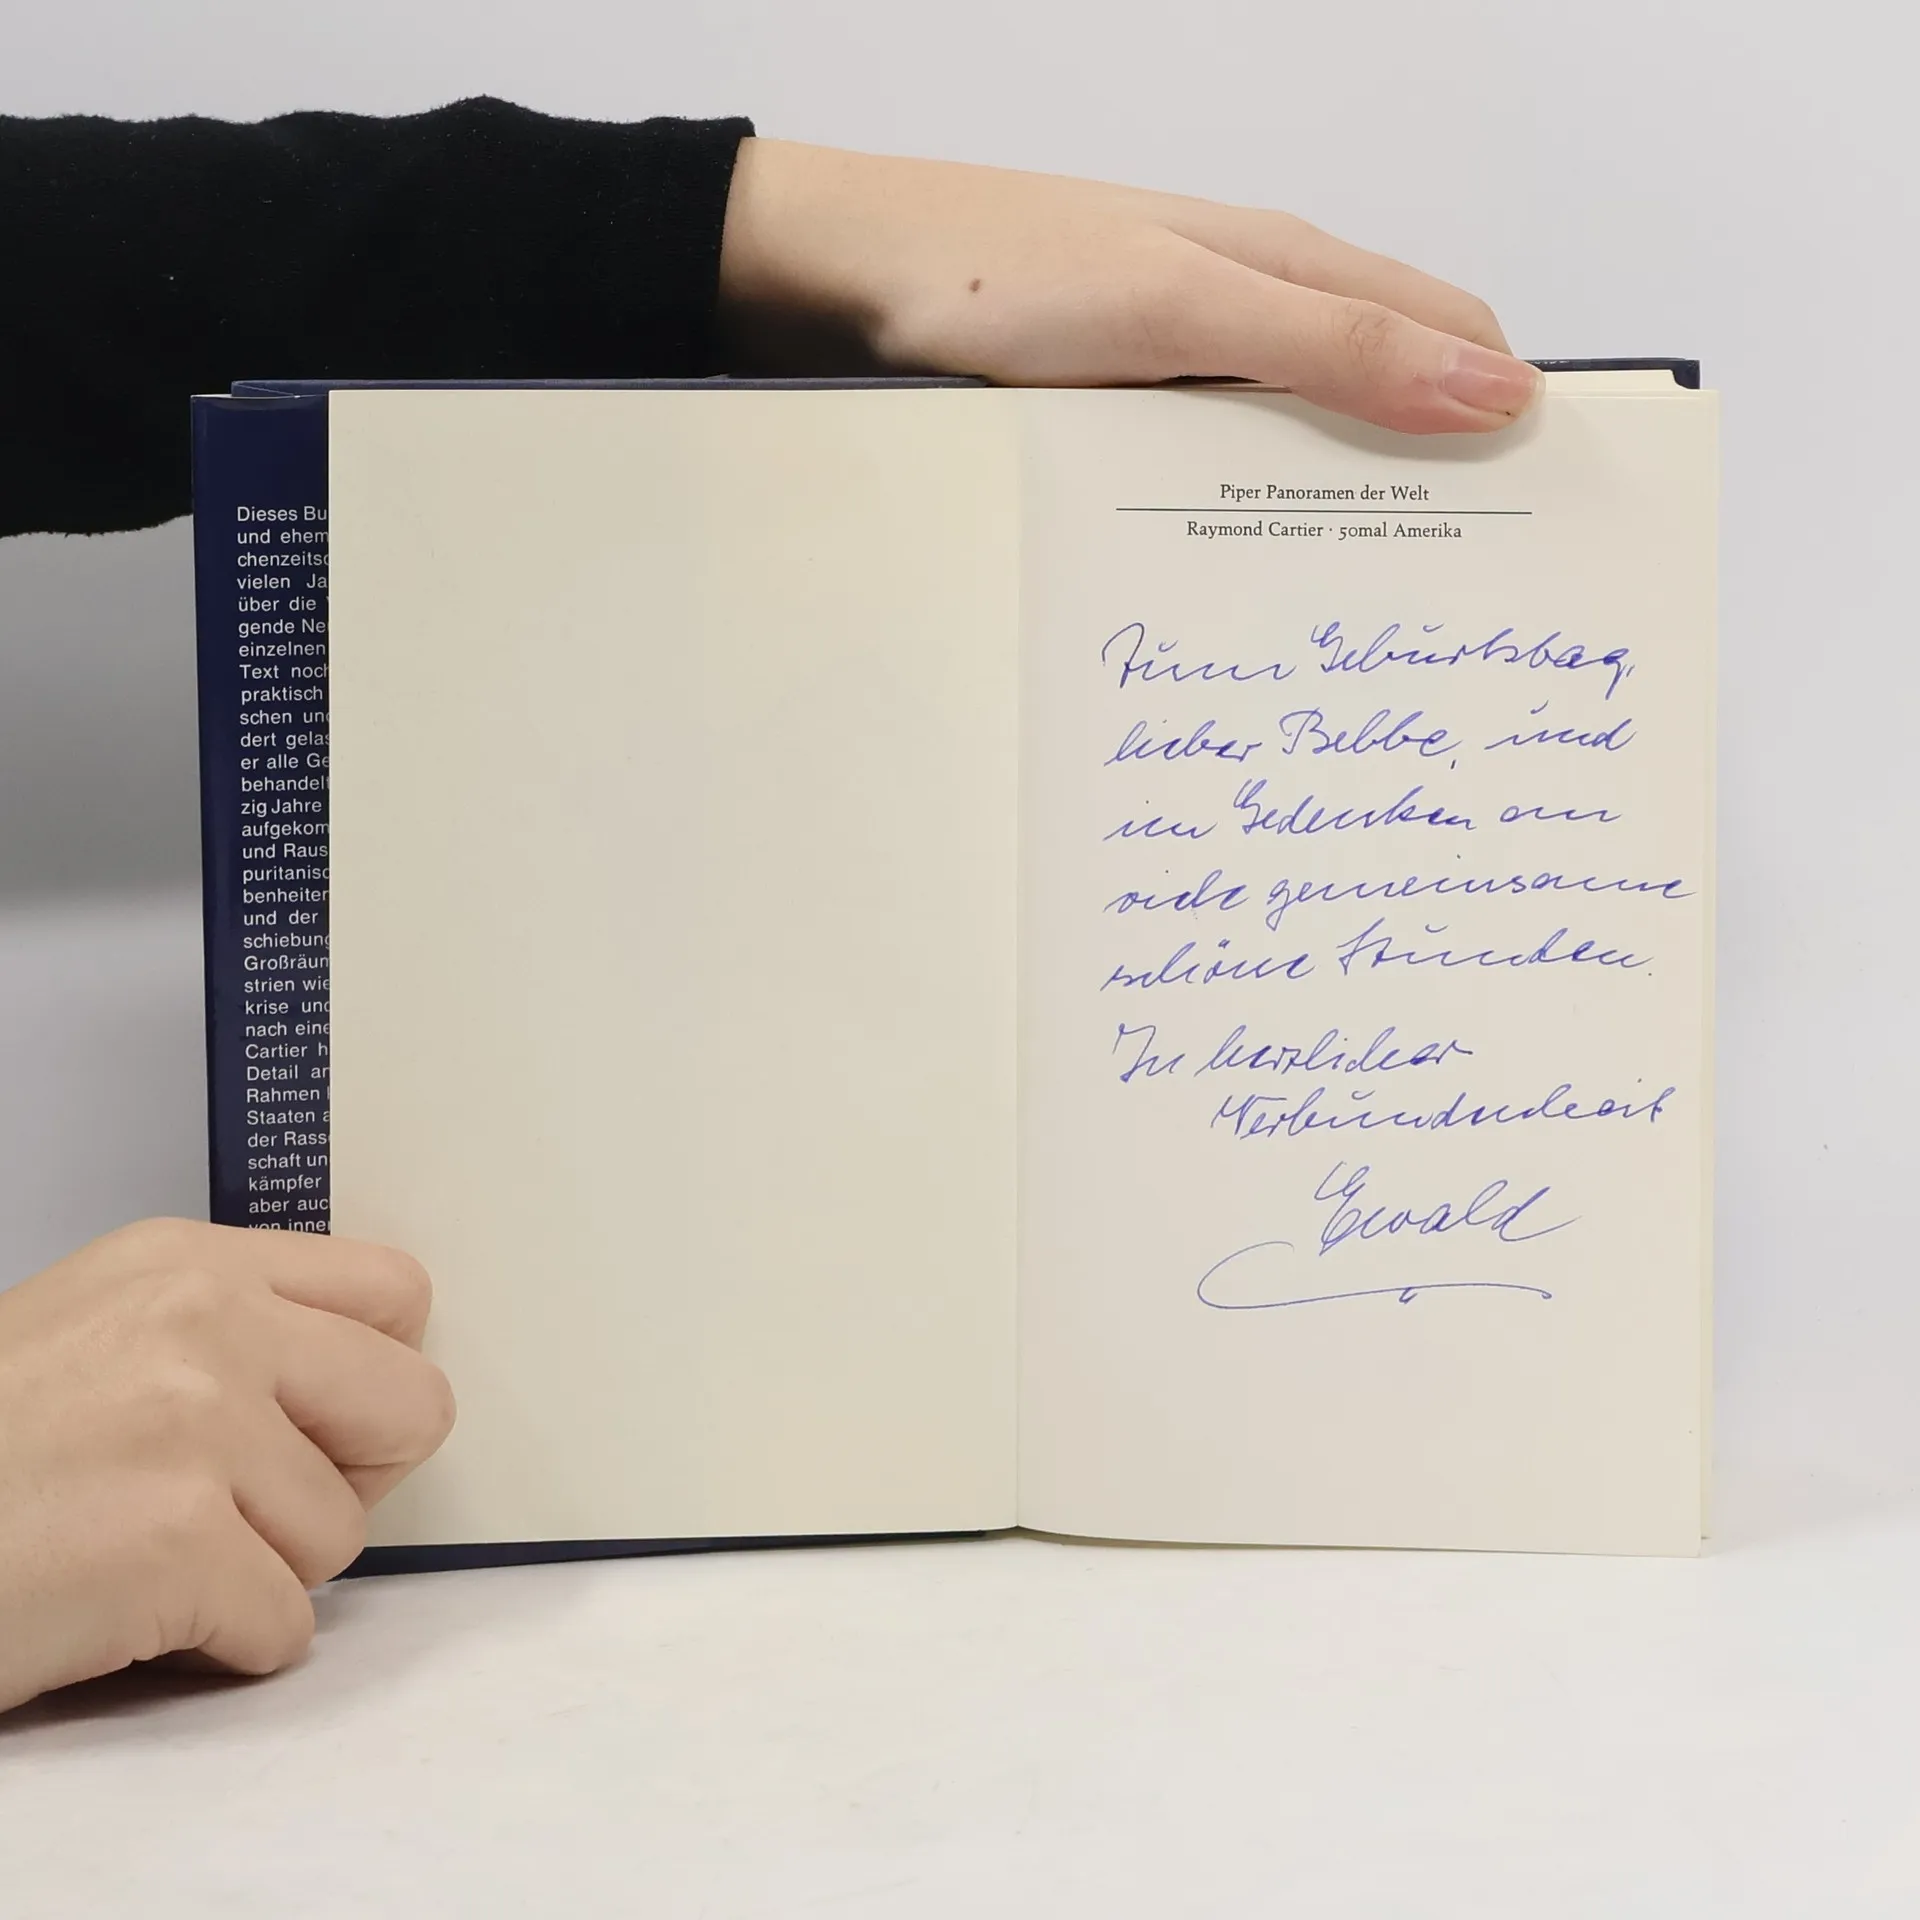 Dieses Bu
und ehem
chenzeitsc
vielen Ja
über die
gende Ne
einzelnen
Text noch
praktisch
schen und
dert gelas
er alle Ge
behandelt
zig Jahre
aufgekom
und Raus
puritanisc
benheiten
und der
schiebung
Großräum
strien wie
krise und
nach eine
Cartier h
Detail an
Rahmen
Staaten a
der Rasse
schaft un
kämpfer
aber auch
von inner
Piper Panoramen der Welt
Raymond Cartier · 50mal Amerika
Zum Geburtstag,
lieber Bebbe, und
im Gedenken an
viele gemeinsame
schöne Stunden.
In herzlicher
Verbundenheit
Ewald